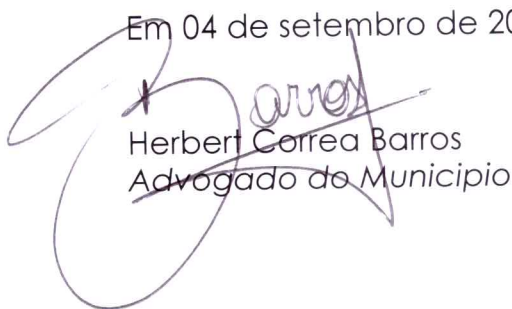 Em 04 de setembro de 20
Barros
Herbert Correa Barros
Advogado do Municipio